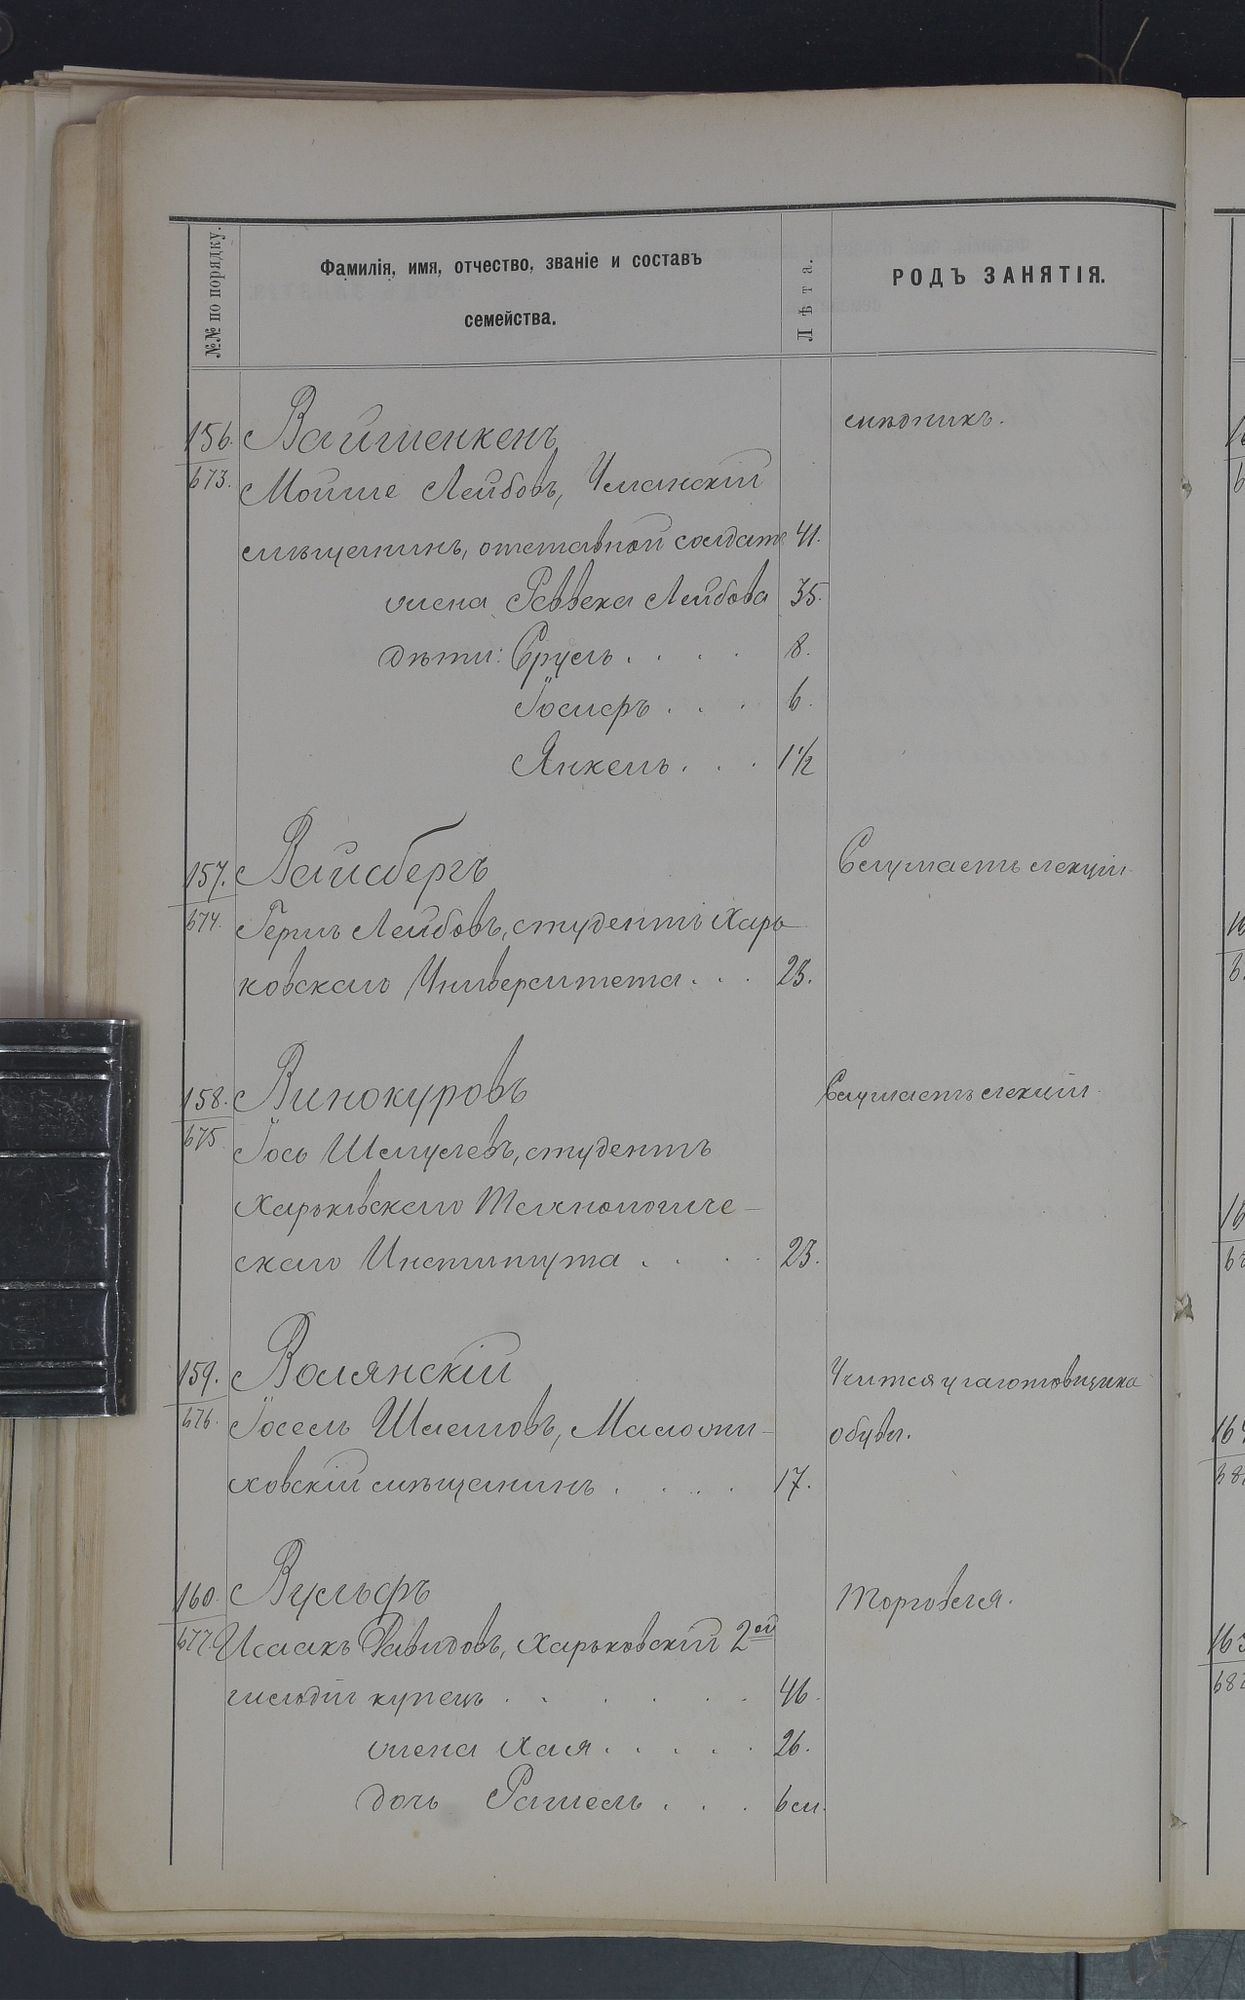 №№ по порядку.
Фамилія, имя, отчество, званіе и составъ
семейства.
Лѣта.
РОДЪ ЗАНЯТІЯ.
156. Вайшенкенъ мѣдникъ.
673. Мойше Лейбовъ, Уманскій
мѣщанинъ, отставной солдатъ 41.
жена Реввека Лейбова 35.
дѣти: Сруль . . . . 8.
Іосифъ . . . 6.
Янкель . . . 1 1/2
157. Вайсбергъ Слушаетъ лекціи
674. Герцъ Лейбовъ, студентъ Харь
ковскаго Университета . . . 23.
158. Винокуровъ Слушаетъ лекціи
675. Іось Шмулевъ, студентъ
Харьковскаго Технологиче-
скаго Института . . . . 23.
159. Волянскій Учится у заготовщика
676. Іосель Шлемовъ, обуви.
ховскій мѣщанинъ . . . . 17.
160. Вульфъ Торговля.
677. Исаакъ Давидовъ, Харьковскій 2ой
гильдіи купецъ . . . . . . 46.
жена Хая . . . . . 26.
дочь Рашель . . . 6 м.